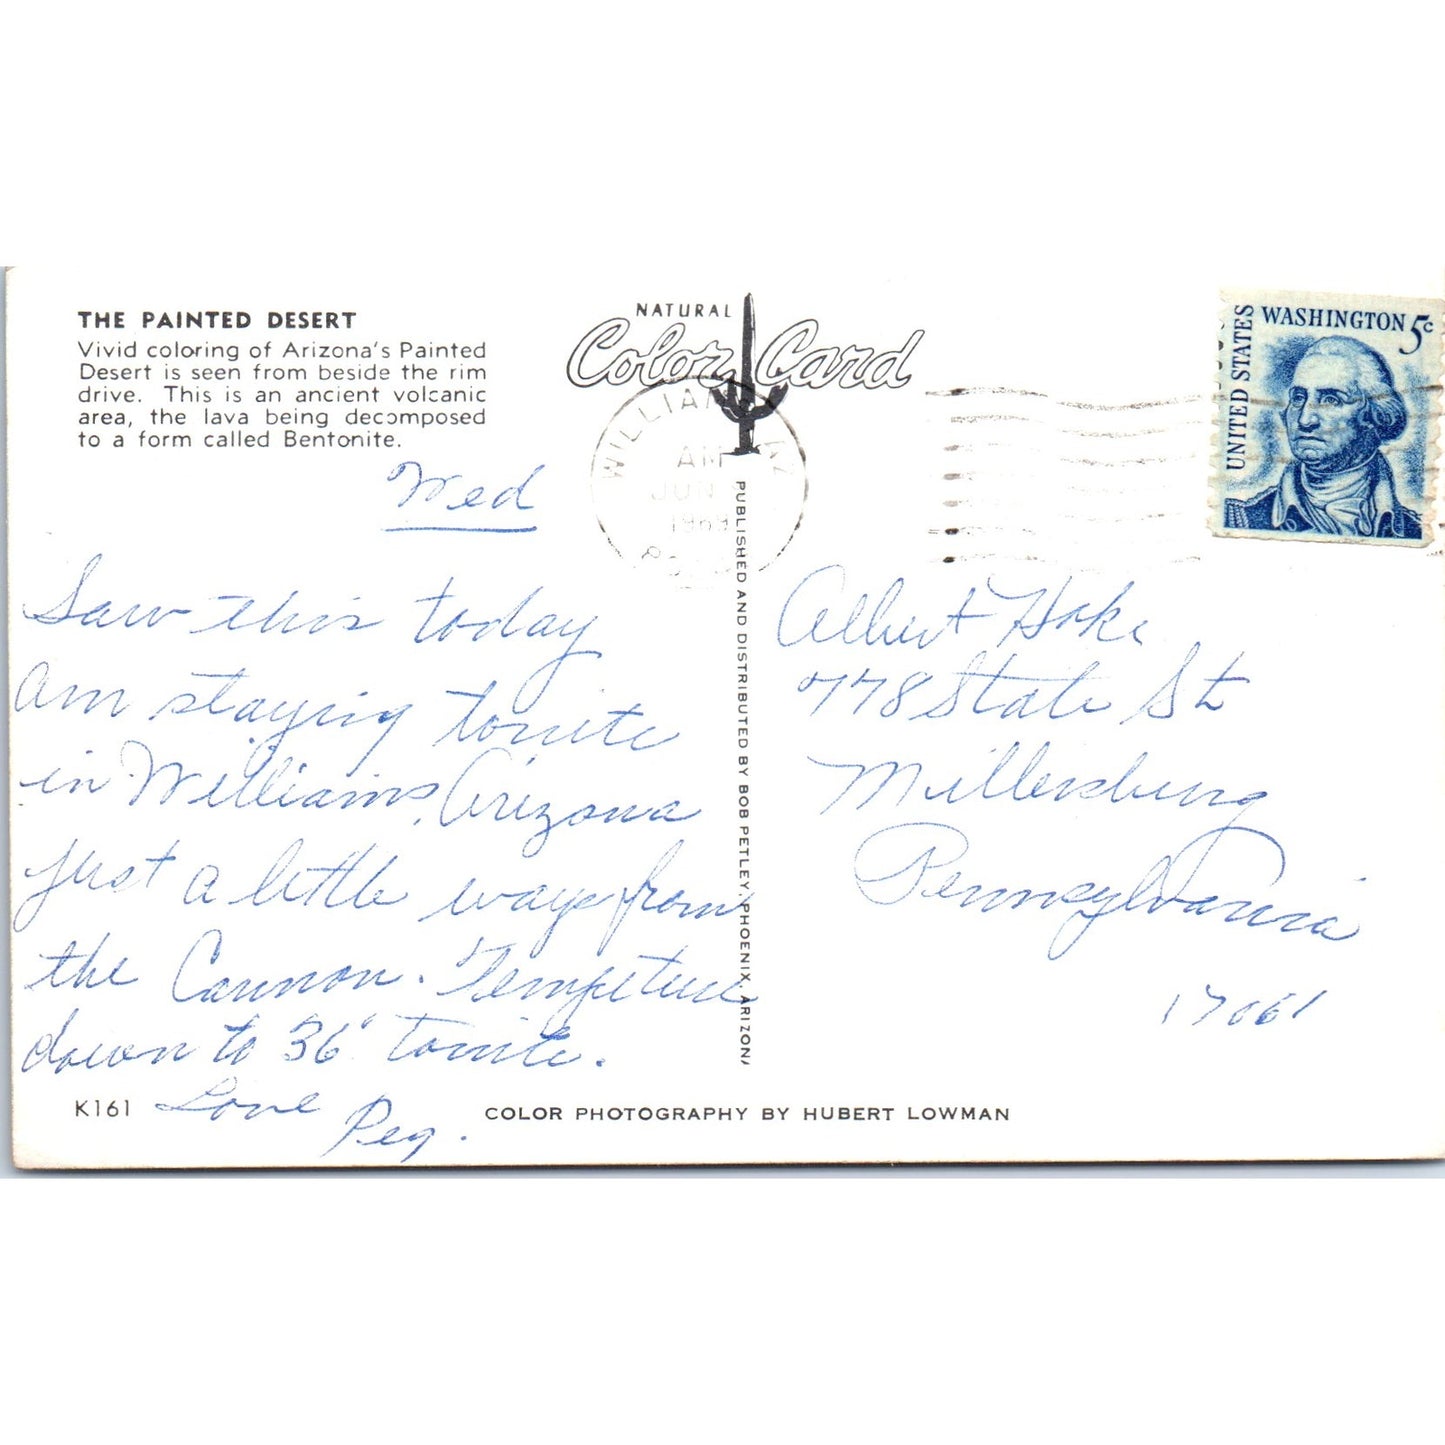 THE PAINTED DESERT
Vivid coloring of Arizona's Painted
Desert is seen from beside the rim
drive. This is an ancient volcanic
area, the lava being decomposed
to a form called Bentonite.
Wed
Saw this today
Am staying tonite
in Williams, Arizona
just a little ways from
the Cannon. Tempeture
down to 36° tonite.
Love
Peg.
K161
NATURAL
Color Card
WILLIAMS AZ
AM
JUN
1969
PUBLISHED AND DISTRIBUTED BY BOB PETLEY, PHOENIX, ARIZONA
COLOR PHOTOGRAPHY BY HUBERT LOWMAN
UNITED STATES
WASHINGTON 5c
Albert Hoke
778 State St
Millersburg
Pennsylvania
17061